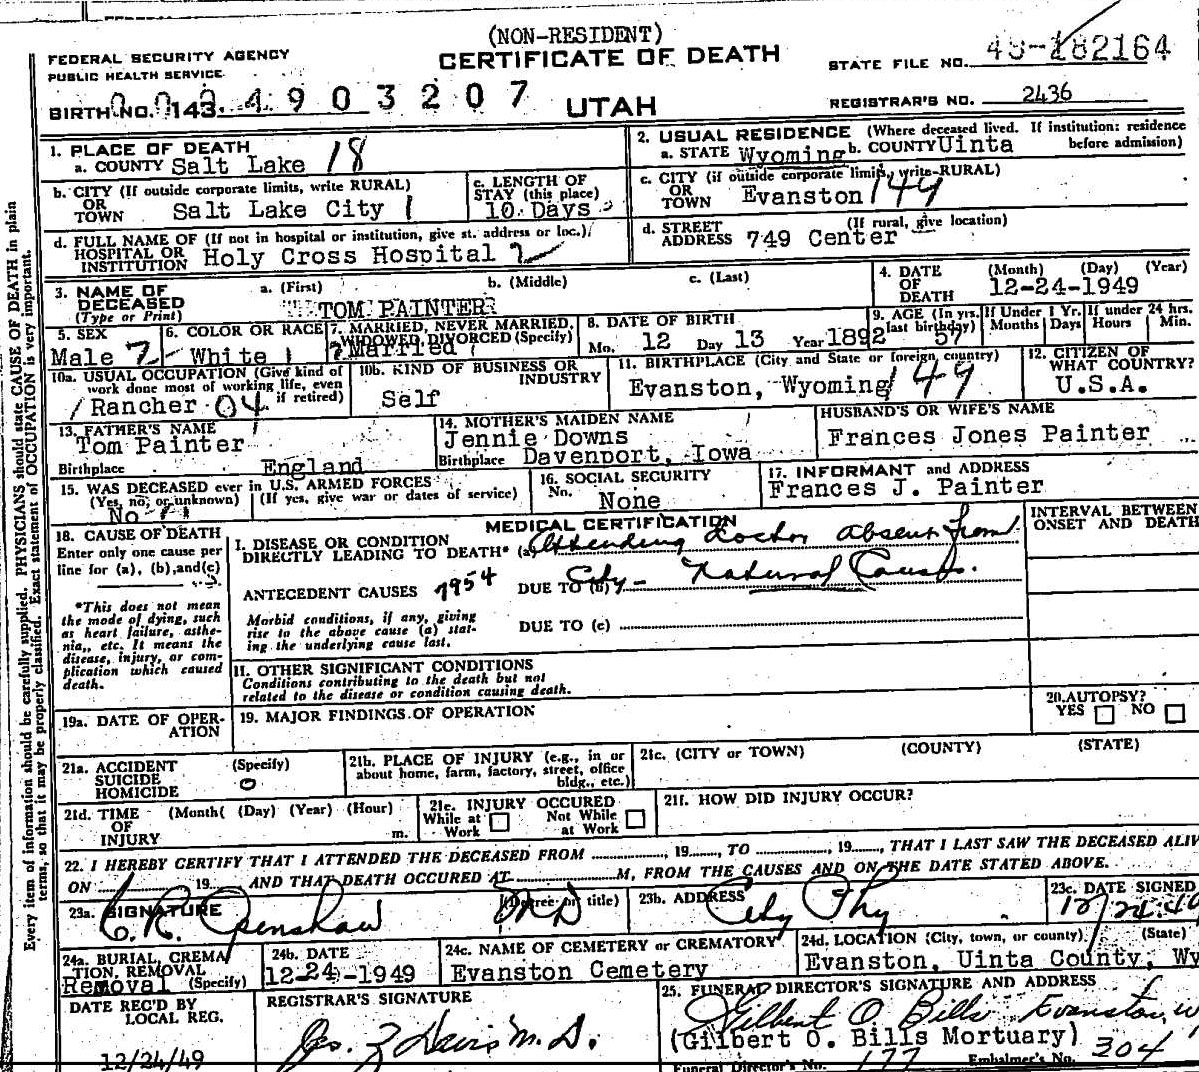 (NON-RESIDENT)
FEDERAL SECURITY AGENCY
PUBLIC HEALTH SERVICE
CERTIFICATE OF DEATH
STATE FILE NO.
BIRTH NO. 143
4903207
UTAH
REGISTRAR'S NO. 2436
1. PLACE OF DEATH
a. COUNTY Salt Lake 18
2. USUAL RESIDENCE (Where deceased lived. If institution: residence before admission)
a. STATE Wyoming b. COUNTY Uinta
b. CITY (If outside corporate limits, write RURAL)
OR
TOWN Salt Lake City 1
c. LENGTH OF
STAY (this place)
10 Days
c. CITY (if outside corporate limits, write RURAL)
OR
TOWN Evanston 149
d. FULL NAME OF (If not in hospital or institution, give st. address or loc.)
HOSPITAL OR
INSTITUTION Holy Cross Hospital 2
d. STREET (If rural, give location)
ADDRESS 749 Center
3. NAME OF
DECEASED
(Type or Print)
a. (First) b. (Middle) c. (Last)
TOM PAINTER
4. DATE
OF
DEATH
(Month) (Day) (Year)
12-24-1949
5. SEX
Male
6. COLOR OR RACE
White
7. MARRIED, NEVER MARRIED,
WIDOWED, DIVORCED (Specify)
Married
8. DATE OF BIRTH
Mo. 12 Day 13 Year 1892
9. AGE (In yrs.
last birthday)
57
If Under 1 Yr.
Months Days
If under 24 hrs.
Hours Min.
10a. USUAL OCCUPATION (Give kind of
work done most of working life, even
if retired)
Rancher 04
10b. KIND OF BUSINESS OR
INDUSTRY
Self
11. BIRTHPLACE (City and State or foreign country)
Evanston, Wyoming 149
12. CITIZEN OF
WHAT COUNTRY?
U.S.A.
13. FATHER'S NAME
Tom Painter
Birthplace England
14. MOTHER'S MAIDEN NAME
Jennie Downs
Birthplace Davenport, Iowa
HUSBAND'S OR WIFE'S NAME
Frances Jones Painter
15. WAS DECEASED ever in U.S. ARMED FORCES
(Yes, no, or unknown) (If yes, give war or dates of service)
No
16. SOCIAL SECURITY
No. None
17. INFORMANT and ADDRESS
Frances J. Painter
18. CAUSE OF DEATH
Enter only one cause per
line for (a), (b), and (c)
*This does not mean
the mode of dying, such
as heart failure, asthe-
nia, etc. It means the
disease, injury, or com-
plication which caused
death.
MEDICAL CERTIFICATION
I. DISEASE OR CONDITION
DIRECTLY LEADING TO DEATH* (a) Attending Doctor absent from
ANTECEDENT CAUSES 7954 DUE TO (b) City - Natural Causes.
Morbid conditions, if any, giving
rise to the above cause (a) stat-
ing the underlying cause last.
DUE TO (c)
II. OTHER SIGNIFICANT CONDITIONS
Conditions contributing to the death but not
related to the disease or condition causing death.
INTERVAL BETWEEN
ONSET AND DEATH
19a. DATE OF OPER-
ATION
19. MAJOR FINDINGS OF OPERATION
20. AUTOPSY?
YES NO
21a. ACCIDENT
SUICIDE
HOMICIDE
(Specify)
0
21b. PLACE OF INJURY (e.g., in or
about home, farm, factory, street, office
bldg., etc.)
21c. (CITY or TOWN) (COUNTY) (STATE)
21d. TIME
OF
INJURY
(Month( (Day) (Year) (Hour)
m.
21e. INJURY OCCURED
While at
Work
Not While
at Work
21f. HOW DID INJURY OCCUR?
22. I HEREBY CERTIFY THAT I ATTENDED THE DECEASED FROM , 19 , TO , 19 , THAT I LAST SAW THE DECEASED ALIVE
ON 19 , AND THAT DEATH OCCURED AT M, FROM THE CAUSES AND ON THE DATE STATED ABOVE.
23a. SIGNATURE (Degree or title)
C. R. Openshaw MD
23b. ADDRESS
City Phy
23c. DATE SIGNED
12/24.49
24a. BURIAL, CREMA
TION, REMOVAL
Removal (Specify)
24b. DATE
12-24-1949
24c. NAME OF CEMETERY or CREMATORY
Evanston Cemetery
24d. LOCATION (City, town, or county) (State)
Evanston, Uinta County, Wy
DATE REC'D BY
LOCAL REG.
12/24/49
REGISTRAR'S SIGNATURE
M.D.
25. FUNERAL DIRECTOR'S SIGNATURE AND ADDRESS
Gilbert O Bills Evanston, W
(Gilbert O. Bills Mortuary)
Funeral Director's No. 177 Embalmer's No. 304
Every item of information should be carefully supplied. PHYSICIANS should state CAUSE OF DEATH in plain
terms, so that it may be properly classified. Exact statement of OCCUPATION is very important.